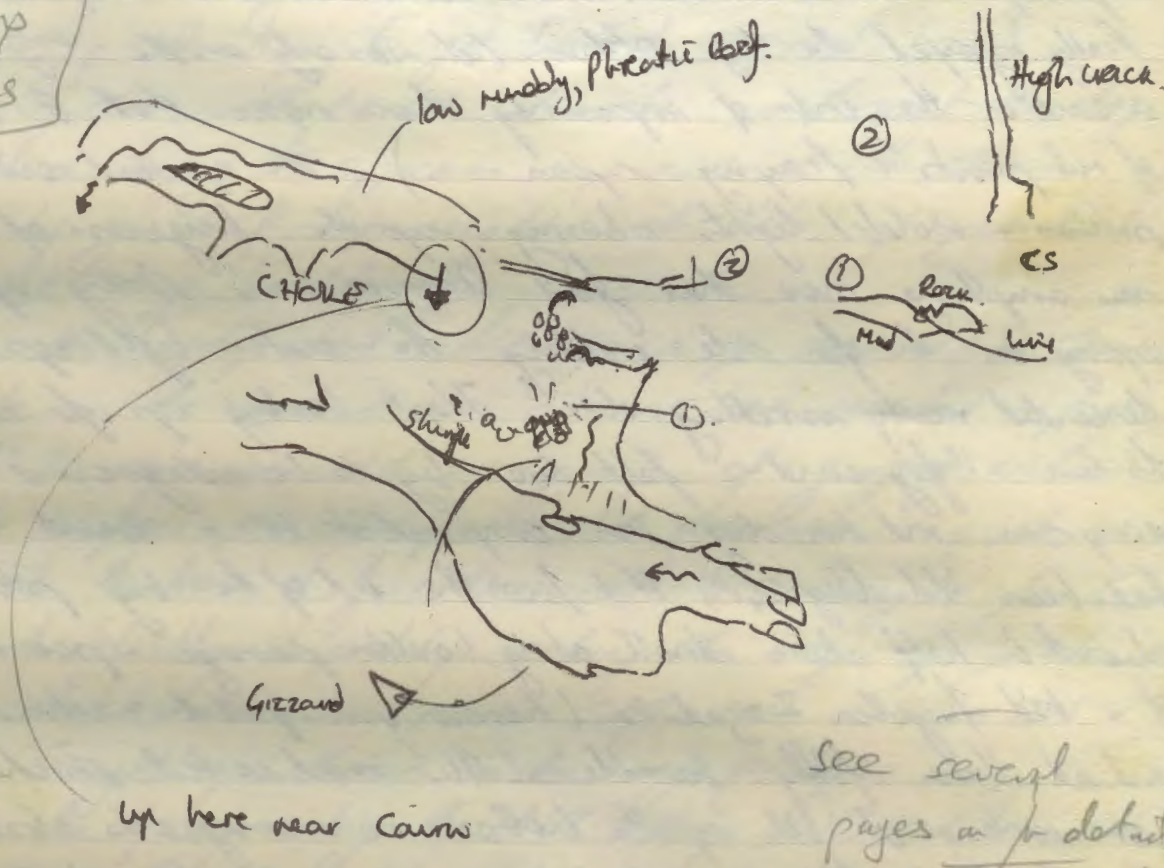 low muddy, Phreatic Roof.
High crack.
②
CHOKE
②
CS
①
Rock.
Mud
①.
Shingle
Gizzard
up here near Cairn
see several
pages on for detail